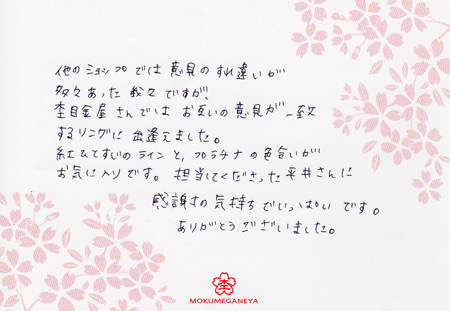 他のショップでは意見のすれ違いが
多々あった我々ですが、
杢目金屋さんではお互いの意見が一致
するリングに出逢えました。
紅ひとすじのラインと、プラチナの色合いが
お気に入りです。担当してくださった平井さんに
感謝の気持ちでいっぱいです。
ありがとうございました。
MOKUMEGANEYA